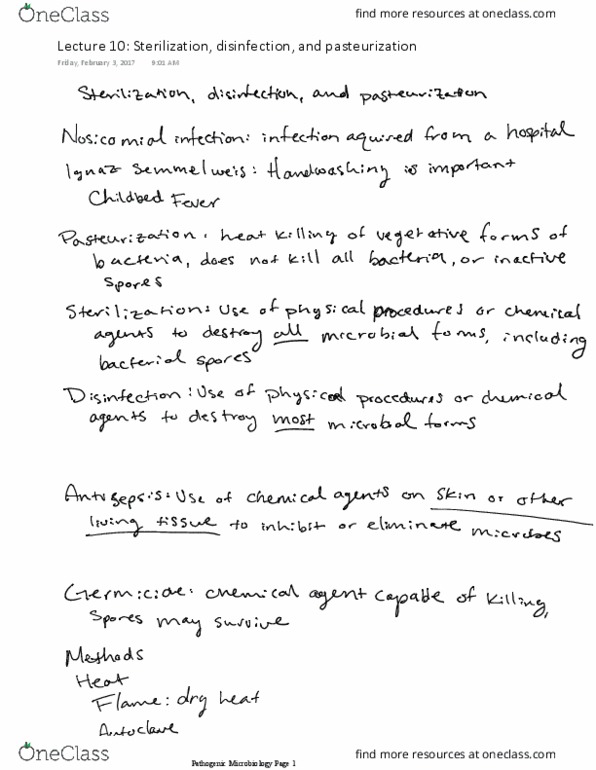 OneClass
find more resources at oneclass.com
Lecture 10: Sterilization, disinfection, and pasteurization
Friday, February 3, 2017 9:01 AM
Sterilization, disinfection, and pasteurization
Nosicomial infection: infection aquired from a hospital
Ignaz Semmelweis: Handwashing is important
Childbed Fever
Pasteurization: heat killing of vegetative forms of
bacteria, does not kill all bacteria, or inactive
spores
Sterilization: Use of physical procedures or chemical
agents to destroy all microbial forms, including
bacterial spores
Disinfection: Use of physical procedures or chemical
agents to destroy most microbial forms
Antisepsis: Use of chemical agents on skin or other
living tissue to inhibit or eliminate microbes
Germicide: chemical agent capable of killing,
spores may survive
Methods
Heat
Flame: dry heat
Autoclave
OneClass
Pathogenic Microbiology Page 1
find more resources at oneclass.com